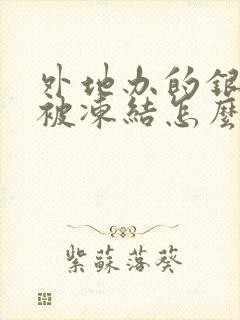 外地办的银
被凍結怎麼
紫蘇落葵